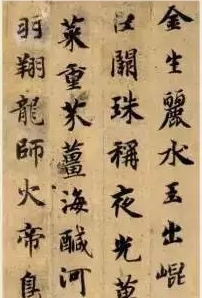 金生麗水玉出崐
巨闕珠稱夜光菓
菜重芥薑海鹹河
羽翔龍師火帝鳥